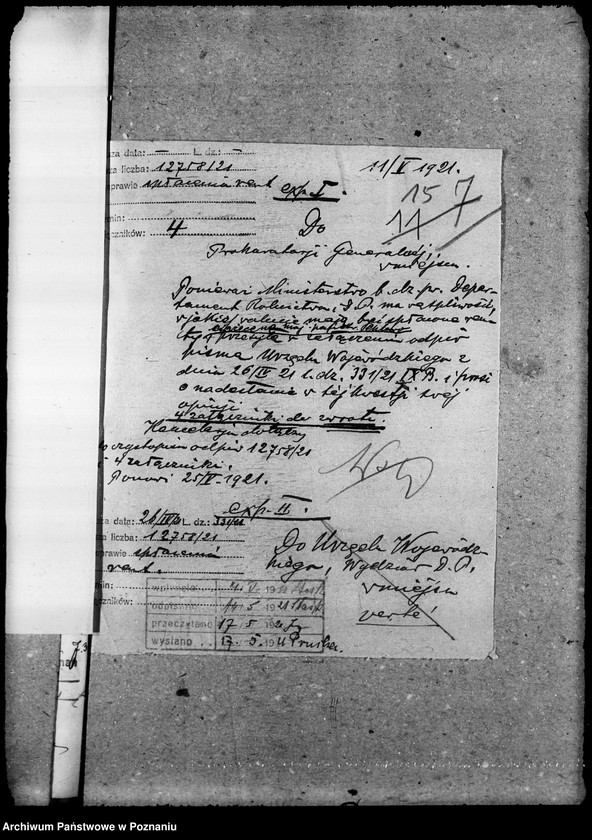 za data: L. dz.:
za liczba: 12758/21
prawie spłacenia rent
min:
ączników: 4
11/V 1921.
15 7
11
exp. I.
Do
Prokuratorji Generalnej,
w miejscu.
Ponieważ Ministerstwo b. dz. pr. Depar-
tament Rolnictwa i D. P. ma wątpliwości,
w jakiej walucie mają być spłacone ren-
ty, przesyła w załączeniu odpis
pisma Urzędu Wojewódzkiego z
dnia 26/IV 21 l. dz. 331/21 IX B. i prosi
o nadesłanie w tej kwestji swej
opinji
4 załączniki do zwrotu.
Kancelarja dołączy
odpis 12758/21
4 załączniki.
Ponowi 25/V 1921.
exp. II.
za data: 26/IV 21 L. dz.: 331/21
za liczba: 12758/21
prawie spłacenia
rent.
min:
ączników:
Do Urzędu Wojewódz-
kiego, Wydział D. P.,
w miejscu
verte!
wpłynęło 4. V. 1921
odpisano 14/5 1921
przeczytano 17/5 1921
wysłano 17. 5. 1921
Archiwum Państwowe w Poznaniu